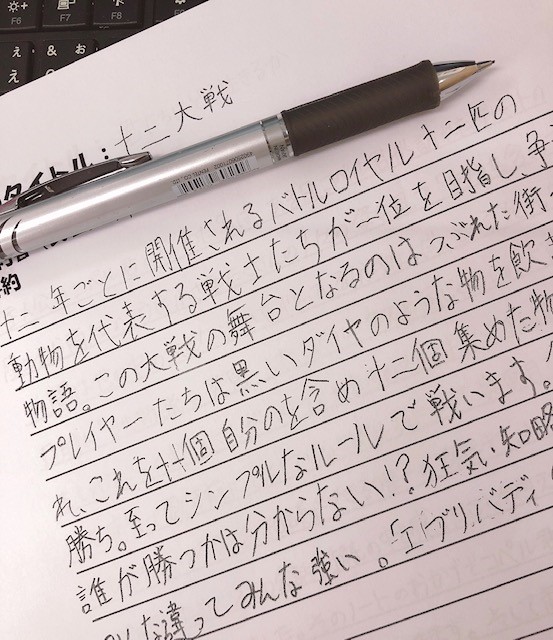 F6
F7
F8
え
&
お
え
お
タイトル：十二大戦
約
十二年ごとに開催されるバトルロイヤル十二匹の
動物を代表する戦士たちが一位を目指し、争
物語。この大戦の舞台となるのはつぶれた街
プレイヤーたちは黒いダイヤのような物を飲ま
れ、これを十一個自分のを含め十二個集めた物
勝ち。至ってシンプルなルールで戦います。
誰が勝つかは分からない!?狂気、知略
みんな違ってみんな強い。「エブリバディ